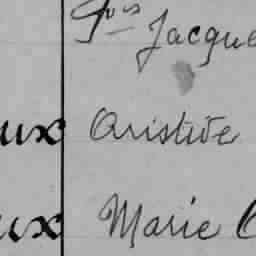 Jacque
ux Aristide
ux Marie